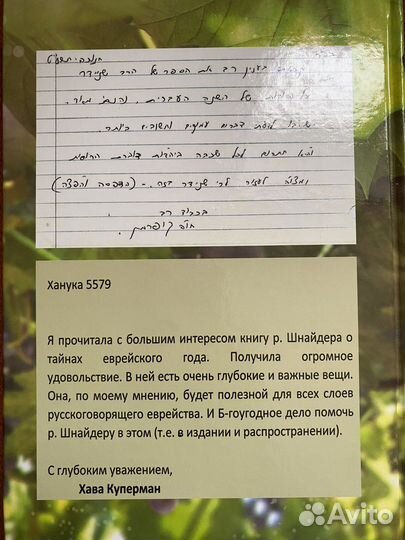 חנוכה תשע"ט
קראתי בענין רב את הספר של הרב שניידר
על סודות של השנה העברית. ונהנתי מאוד.
יש בו לדעתי דברים עמוקים וחשובים ביותר.
לכל שכבה ביהדות דוברת הרוסית
ומצוה לעזור לר' שניידר בזה. - (הדפסה והפצה)
בכבוד רב
חוה קופרמן.
Ханука 5579
Я прочитала с большим интересом книгу р. Шнайдера о
тайнах еврейского года. Получила огромное
удовольствие. В ней есть очень глубокие и важные вещи.
Она, по моему мнению, будет полезной для всех слоев
русскоговорящего еврейства. И Б-гоугодное дело помочь
р. Шнайдеру в этом (т.е. в издании и распространении).
С глубоким уважением,
Хава Куперман
Avito